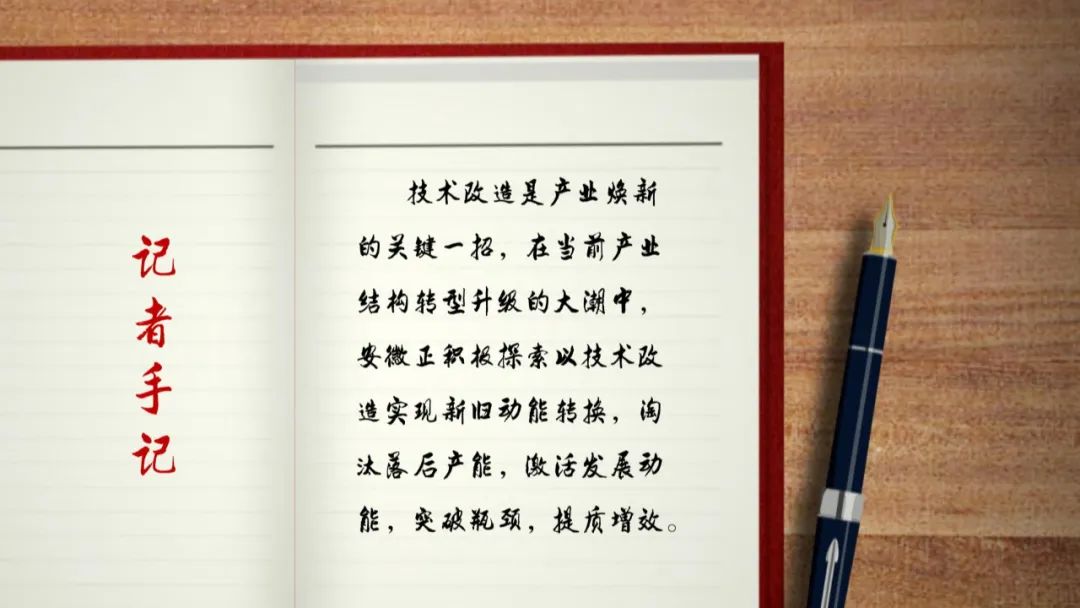 记者手记
技术改造是产业焕新
的关键一招，在当前产业
结构转型升级的大潮中，
安徽正积极探索以技术改
造实现新旧动能转换，淘
汰落后产能，激活发展动
能，突破瓶颈，提质增效。